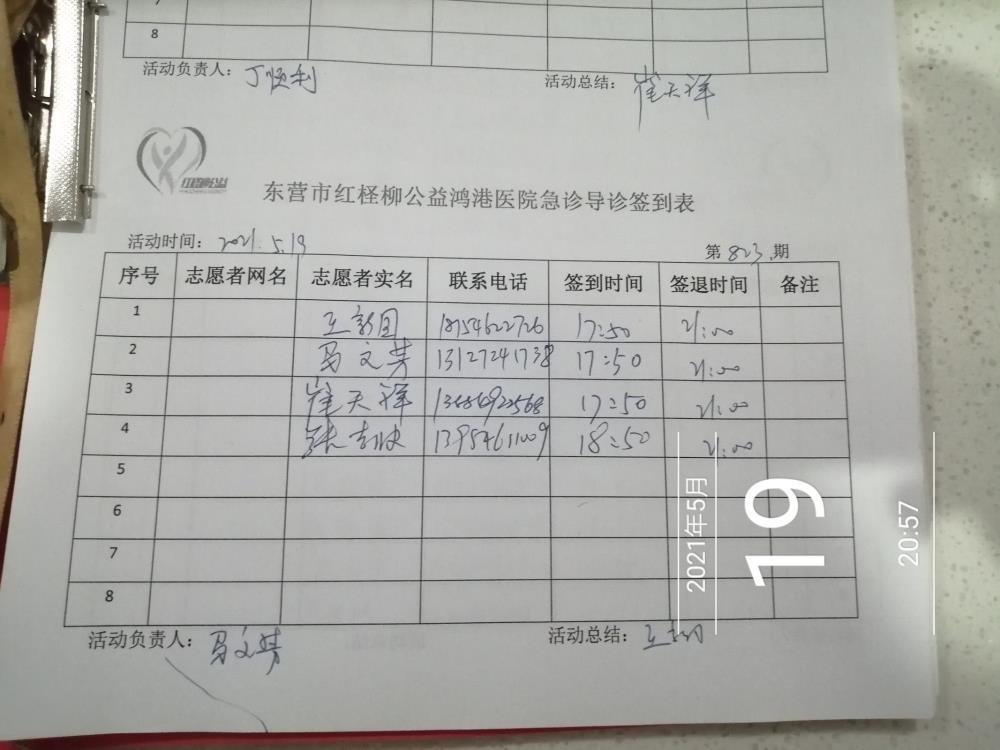 8
活动负责人：丁顺利 活动总结：崔天祥
红柽柳公益
东营市红柽柳公益鸿港医院急诊导诊签到表
活动时间：2021.5.19 第823期
序号 志愿者网名 志愿者实名 联系电话 签到时间 签退时间 备注
1 王新国 18754622726 17:50 21:00
2 马文芳 13127241738 17:50 21:00
3 崔天祥 17:50 21:00
4 13954611009 18:50 21:00
5
6
7
8
活动负责人：马文芳 活动总结：
2021年5月
19
20:57